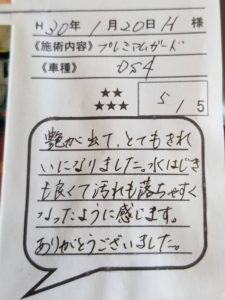 H30年1月20日H様
《施術内容》プレミアムガード
《車種》DS4
★★
★★★
5/5
艶が出て、とてもきれ
いになりました。水はじき
も良くて汚れも落ちやすく
なったように感じます。
ありがとうございました。